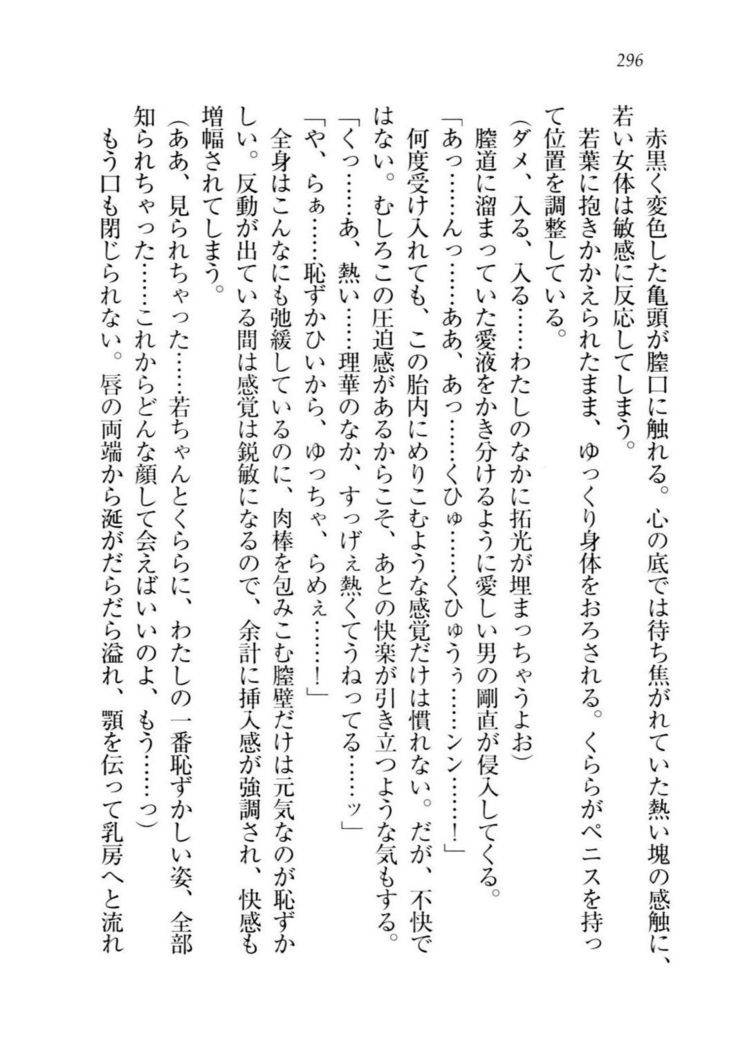 296
赤黒く変色した亀頭が膣口に触れる。心の底では待ち焦がれていた熱い塊の感触に、
若い女体は敏感に反応してしまう。
若葉に抱きかかえられたまま、ゆっくり身体をおろされる。くららがペニスを持っ
て位置を調整している。
(ダメ、入る、入る……わたしのなかに拓光が埋まっちゃうよお)
膣道に溜まっていた愛液をかき分けるように愛しい男の剛直が侵入してくる。
「あっ……んっ……ああ、あっ……くひゅ……くひゅうぅ……ンン……！」
何度受け入れても、この胎内にめりこむような感覚だけは慣れない。だが、不快で
はない。むしろこの圧迫感があるからこそ、あとの快楽が引き立つような気もする。
「くっ……あ、熱い……理華のなか、すっげぇ熱くてうねってる……ッ」
「や、らぁ……恥ずかひいから、ゆっちゃ、らめぇ……！」
全身はこんなにも弛緩しているのに、肉棒を包みこむ膣壁だけは元気なのが恥ずか
しい。反動が出ている間は感覚は鋭敏になるので、余計に挿入感が強調され、快感も
増幅されてしまう。
(ああ、見られちゃった……若ちゃんとくららに、わたしの一番恥ずかしい姿、全部
知られちゃった……これからどんな顔して会えばいいのよ、もう……っ)
もう口も閉じられない。唇の両端から涎がだらだら溢れ、顎を伝って乳房へと流れ